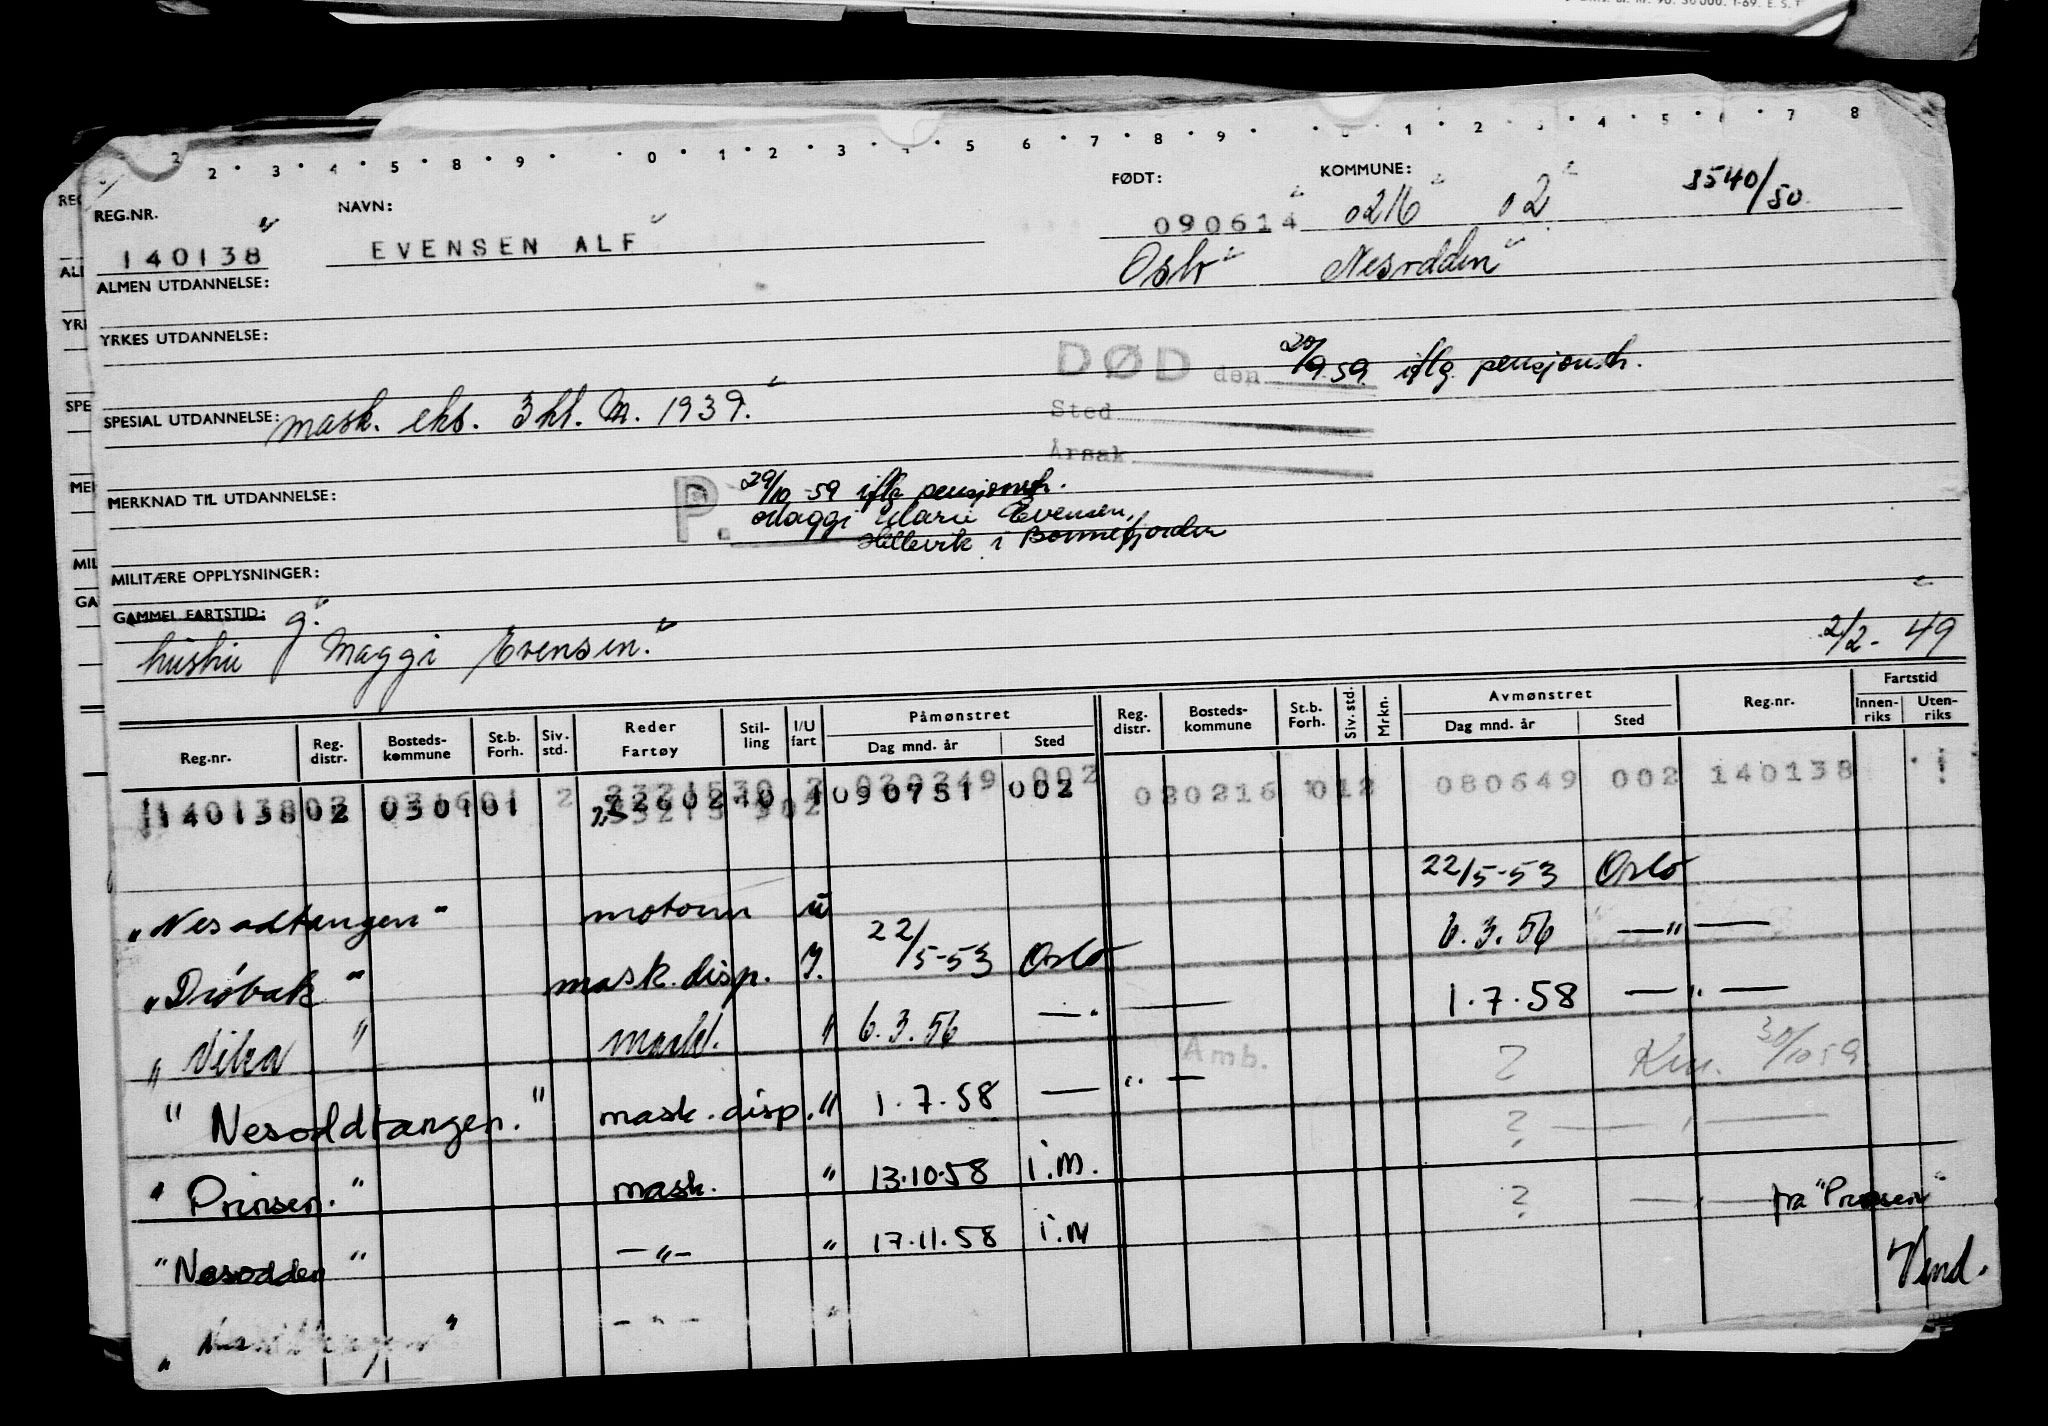 2 · 3 · 4 · 5 · 8 · 9 · · 0 · 1 · 2 · 3 · 5 6 · 7 · 8 · 9 · · 1 · 2 · 4 · 5 7 · 8
REG.NR. NAVN: FØDT: KOMMUNE: 3540/50
140138 EVENSEN ALF 090614 0216 02
ALMEN UTDANNELSE: Oslo Nesodden
YRKES UTDANNELSE:
DØD den 20/9 59 iflg. pensjonstr.
SPESIAL UTDANNELSE: mask. eks. 3 kl. M. 1939.
Sted
Årsak
MERKNAD TIL UTDANNELSE:
P. 29/10-59 iflg pensjonstr.
Maggi Marie Evensen,
Hellevik i Bonnefjorden
MILITÆRE OPPLYSNINGER:
GAMMEL FARTSTID: g.
hustru Maggi Evensen. 2/2-49
Reg.nr. Reg. distr. Bosteds-kommune St.b. Forh. Siv. std. Reder Fartøy Stil-ling I/U fart Påmønstret Dag mnd. år Sted Reg. distr. Bosteds-kommune St.b. Forh. Siv. std. Mrkn. Avmønstret Dag mnd. år Sted Reg.nr. Fartstid Innen-riks Uten-riks
020249 002 020216 012 080649 002 140138
140138 02 030101 090751 002
"Nesodtangen" motorm u 22/5-53 Oslo
"Drøbak" mask.disp. I. 22/5-53 Oslo 6.3.56 —"—
"Vika" mask. " 6.3.56 —"— 1.7.58 —"—
Amb.
"Nesoddtangen." mask.disp. " 1.7.58 —"— ? Km. 30/10 59
"Prinsen." mask. " 13.10.58 i.M. ? —"—
"Nesodden" —"— " 17.11.58 i.M ? —"— fra "Prinsen"
" " —"— "
Vend.